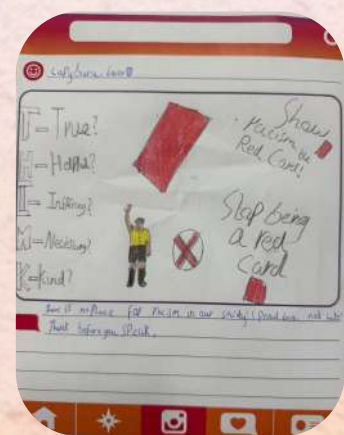 capybara.lover
T - True?
H - Helpful?
I - Inspiring?
N - Necessary?
K - Kind?
Show
racism the
Red Card!
being
a red
card
there is no place for racism in our society! Spread love not hate
Think before you speak.